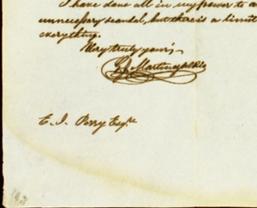 I have done all in my power to a
unnecessary scandal, but there is a limit
everything.
Very truly yours
E. I. Perry Esqr.